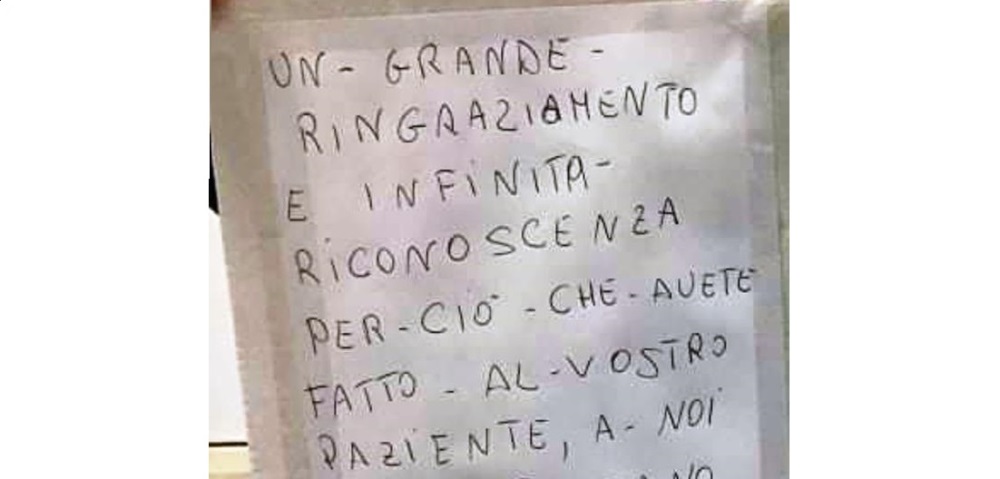 UN - GRANDE -
RINGRAZIAMENTO
E INFINITA -
RICONOSCENZA
PER - CIÒ - CHE - AVETE
FATTO - AL - VOSTRO
PAZIENTE, A - NOI